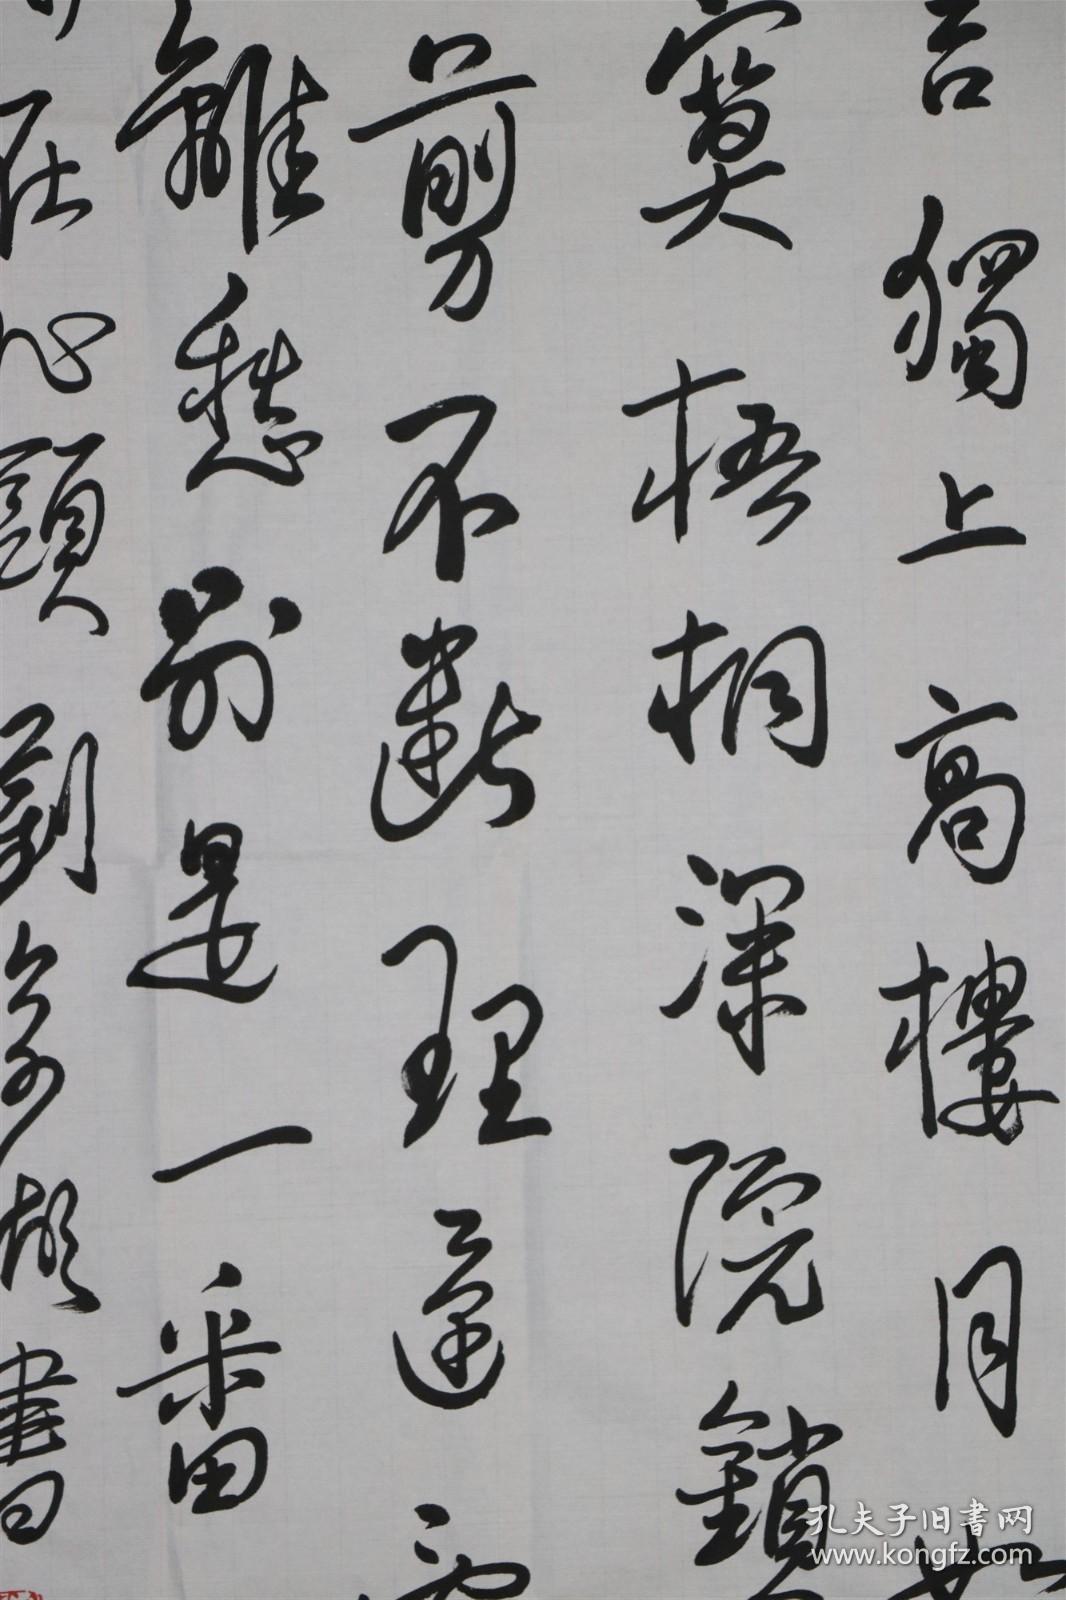 言獨上高樓月如
寞梧桐深院鎖
剪不斷理還
離愁別是一番
在心頭 劉 書
孔夫子旧书网
www.kongfz.com